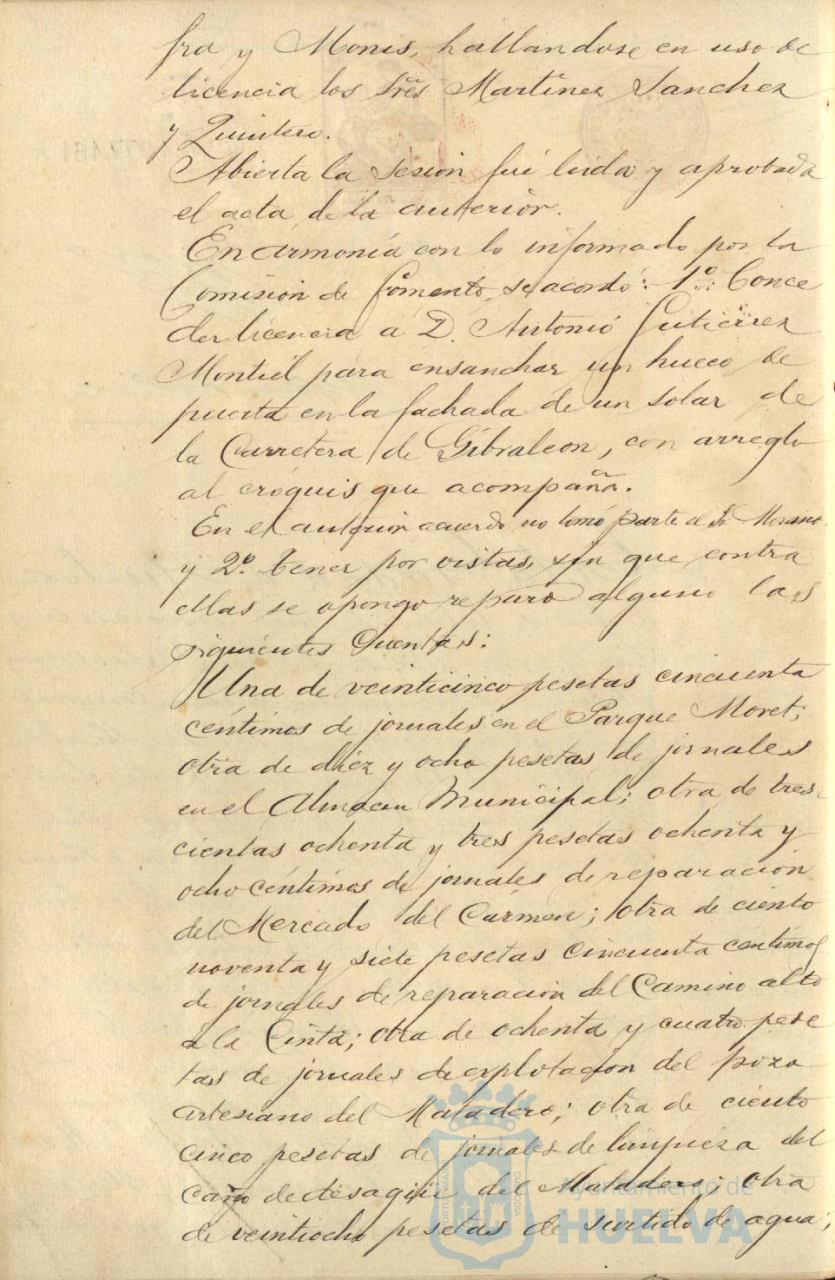 fra y Mones, hallandose en uso de
licencia los Sres Martinez Sanchez
y Quintero.
Abierta la sesion fué leida y aprobada
el acta de la anterior.
En armonía con lo informado por la
Comisión de Fomento, se acordó: 1º Conce
der licencia a D. Antonio Gutierrez
Montiel para ensanchar un hueco de
puerta en la fachada de un solar de
la Carretera de Gibraleon, con arreglo
al cróquis que acompaña.
En el anterior acuerdo no tomó parte el Sr
y 2º tener por vistas, sin que contra
ellas se oponga reparo alguno las
siguientes Cuentas:
Una de veinticinco pesetas cincuenta
céntimos de jornales en el Parque Moret;
otra de diez y ocho pesetas de jornales
en el Almacen Municipal; otra de tres-
cientas ochenta y tres pesetas ochenta y
ocho céntimos de jornales de reparacion
del Mercado del Cármen; otra de ciento
noventa y siete pesetas cincuenta centimos
de jornales de reparación del Camino alto
a la Cinta; otra de ochenta y cuatro pese
tas de jornales de explotacion del pozo
artesiano del Matadero; otra de ciento
cinco pesetas de jornales de limpieza del
caño de desagüe del Matadero; otra
de veintiocho pesetas de surtido de agua;
Ayuntamiento de
HUELVA